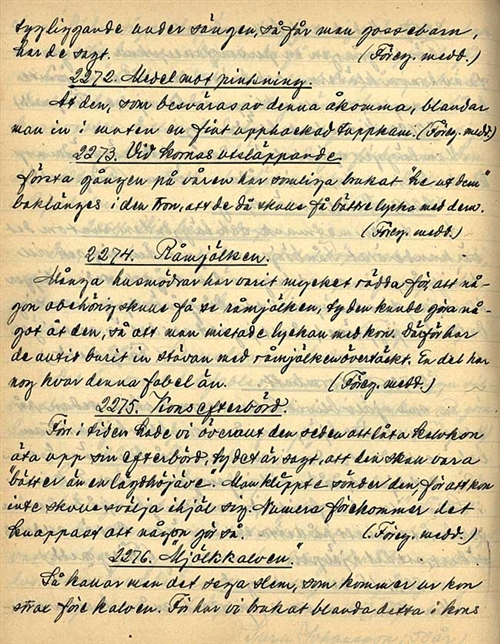 tyg liggande under sängen, så får man gossebarn,
har de sagt. (Föreg. medd.)
2272. Medel mot pinkning.
At den, som besväras av denna åkomma, blandar
man in i maten en fint upphackad tuppkam. (Föreg. medd.)
2273. Vid kornas utsläppande
första gången på våren har somliga brukat "he ut dem"
baklänges i den tron, att de då skulle få bättre lycka med dem.
(Föreg. medd.)
2274. Råmjölken.
Många husmödrar har varit mycket rädda för, att nå-
gon obehörig skulle få se råmjölken, ty den kunde göra nå-
got åt den, så att man mistade lyckan med kon. Därför har
de alltid burit in stävan med råmjölken övertäckt. En del har
nog kvar denna fabel än. (Föreg. medd.)
2275. Kons efterbörd.
Förr i tiden hade vi överallt den seden att låta kalvkon
äta upp sin efterbörd, ty det är sagt, att den skall vara
"bätter än en lägdhöjäve". Man klippte sönder den, för att kon
inte skulle svälja ihjäl sig. Numera förekommer det
knappast att någon gör så. (Föreg. medd.)
2276. "Mjölkkalven."
Så kallar man det sega slem, som kommer ur kon
strax före kalven. Förr har vi brukat blanda detta i kons